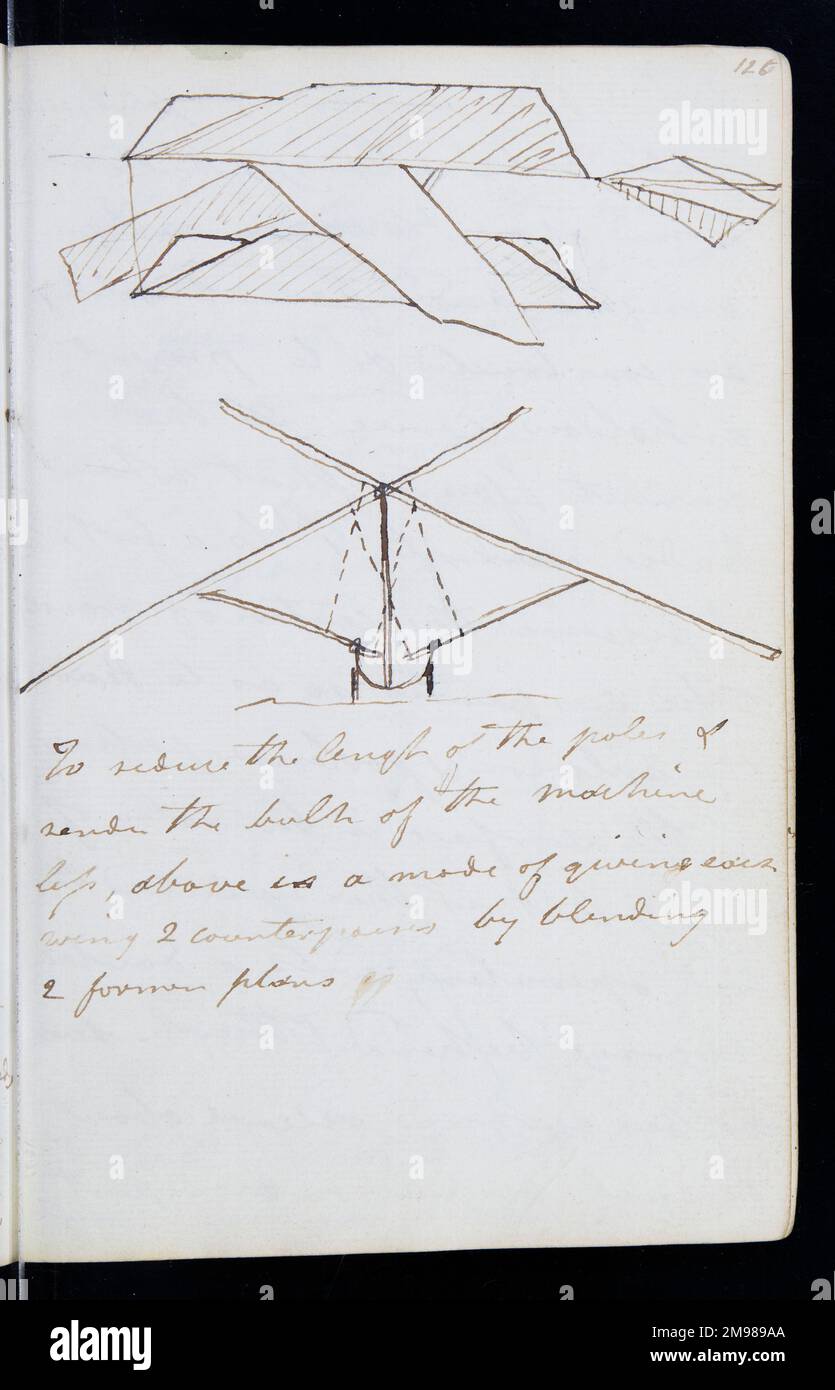 126
To reduce the lengh of the poles &
render the bulk of the machine
less, above is a mode of giving each
wing 2 counterpoises by blending
2 former plans
alamy
Image ID: 2M989AA
www.alamy.com